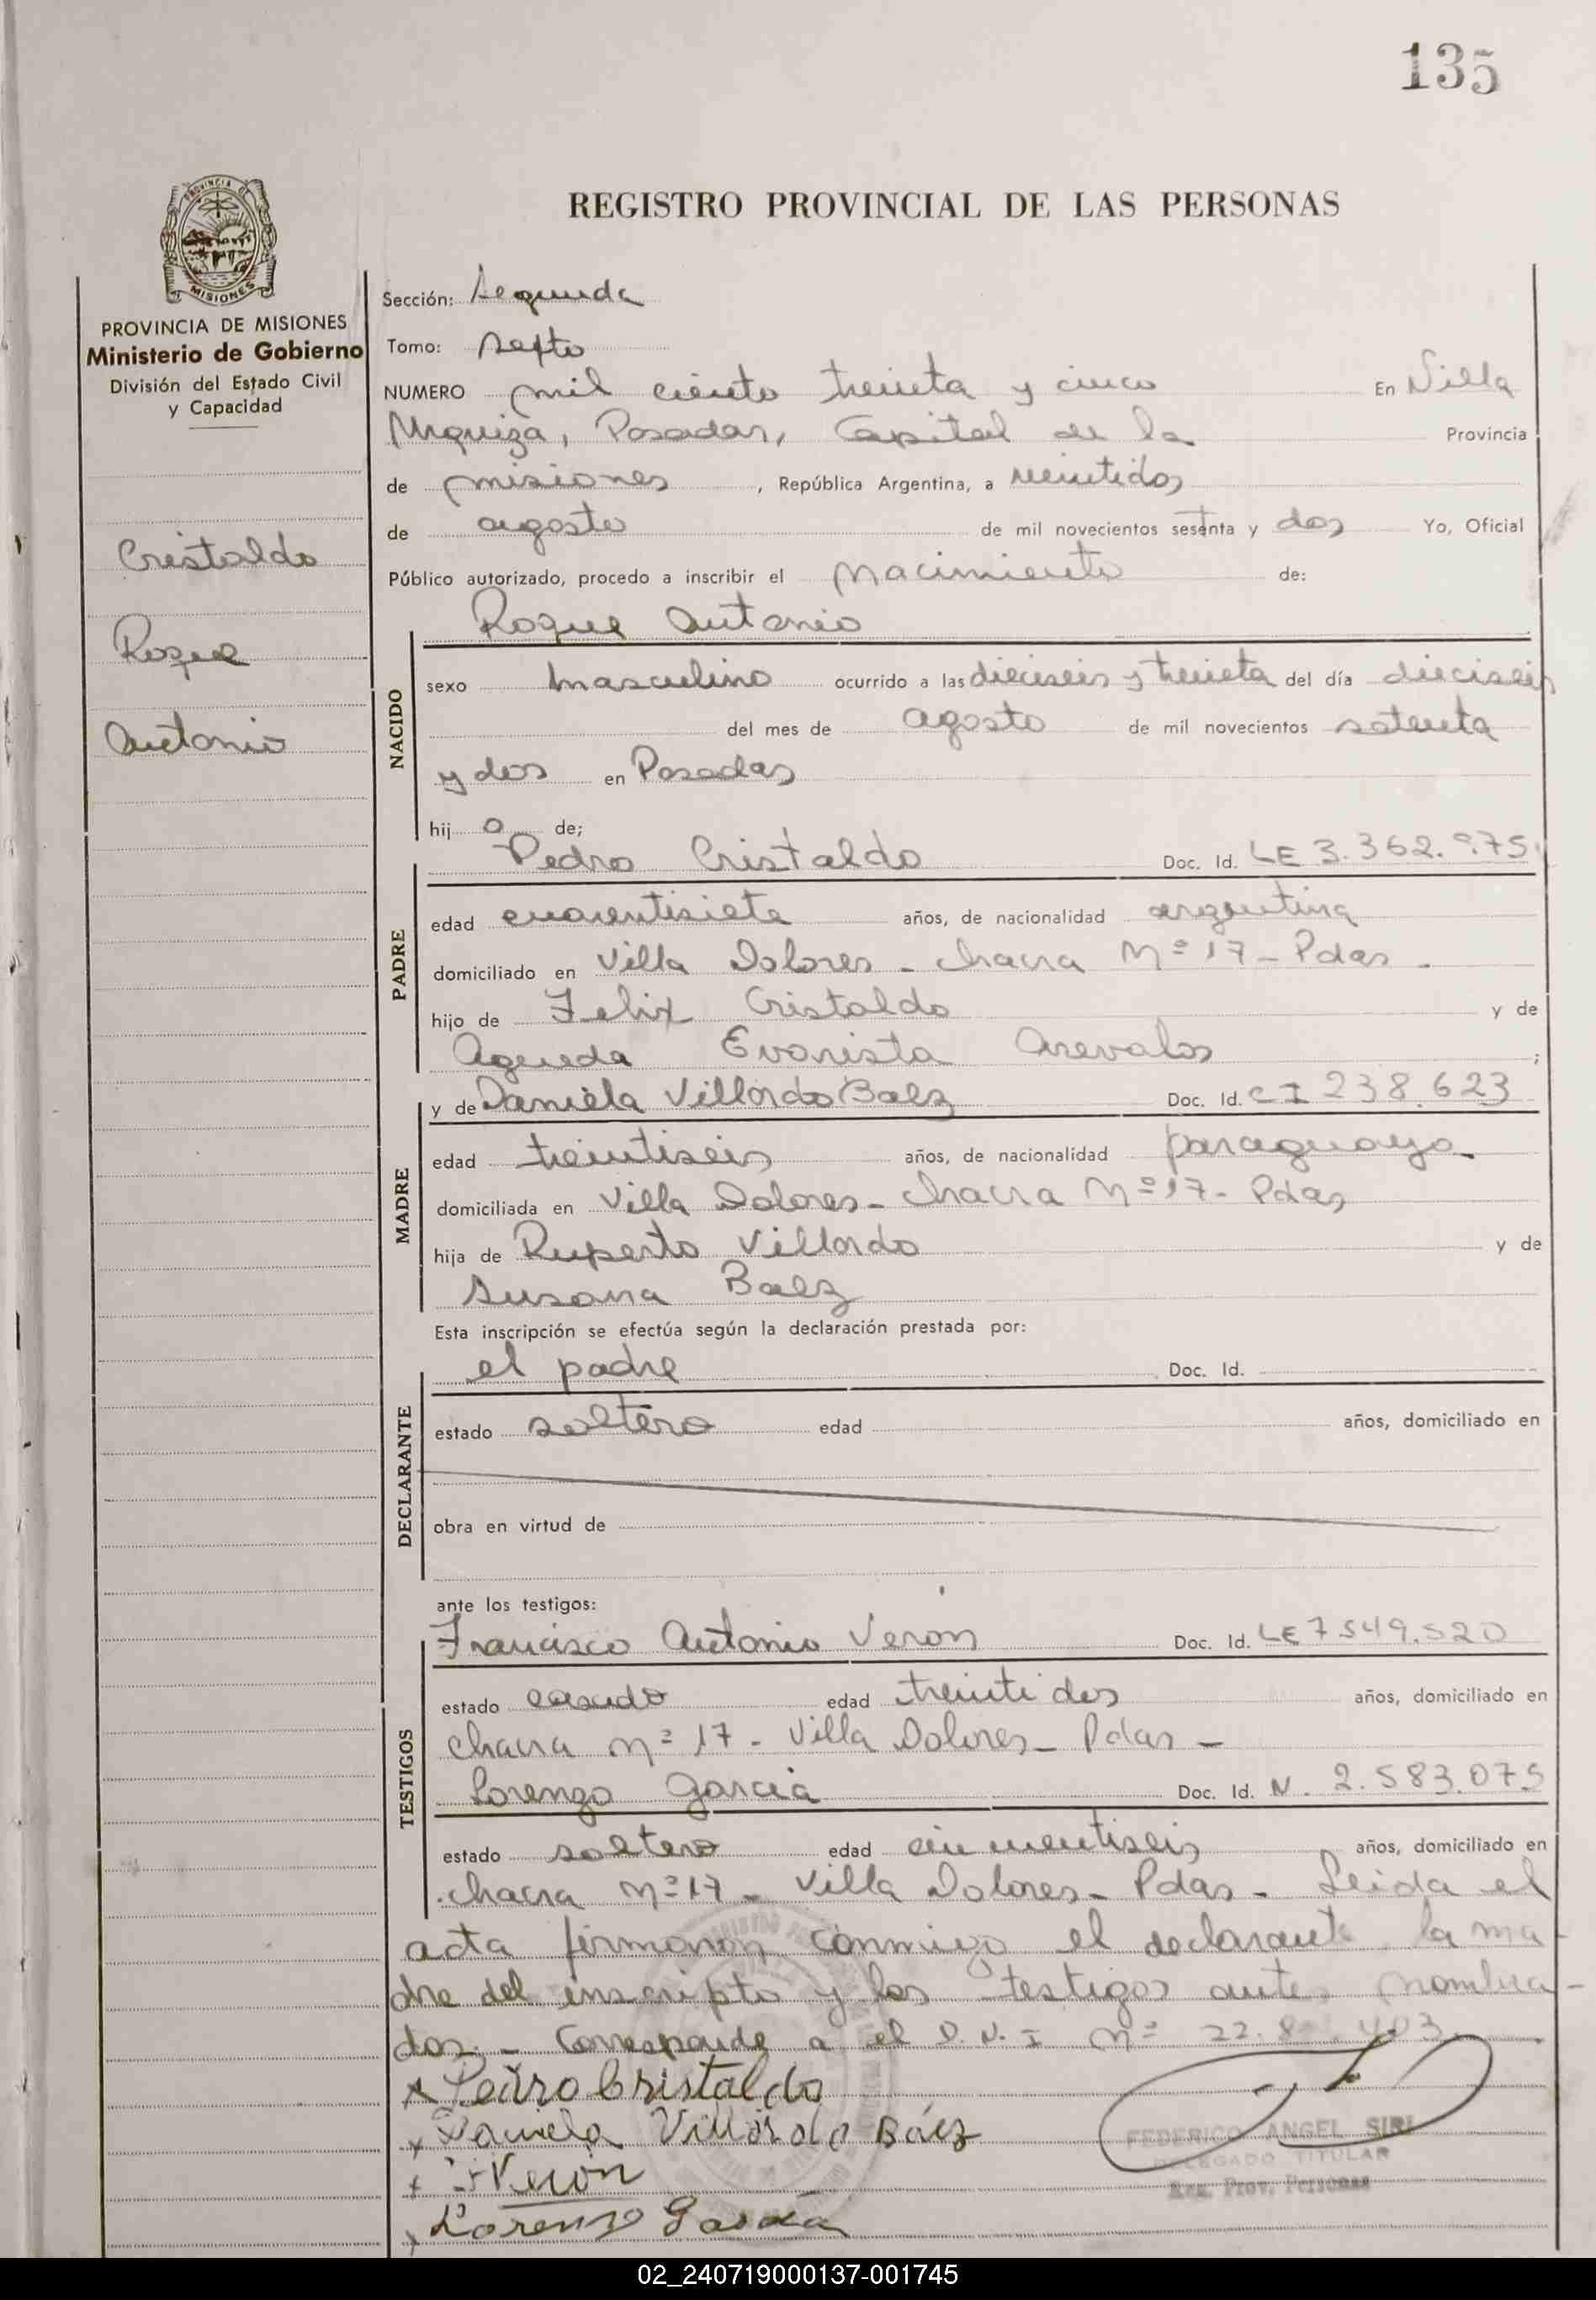 135
PROVINCIA DE MISIONES
REGISTRO PROVINCIAL DE LAS PERSONAS
PROVINCIA DE MISIONES
Ministerio de Gobierno
División del Estado Civil
y Capacidad
Cristaldo
Roque
Antonio
Sección: Segunda
Tomo: septo
NUMERO mil ciento treinta y cinco En Villa
Urquiza, Posadas, Capital de la Provincia
de misiones, República Argentina, a veintidos
de agosto de mil novecientos sesenta y dos Yo, Oficial
Público autorizado, procedo a inscribir el nacimiento de:
Roque Antonio
NACIDO
sexo masculino ocurrido a las dieciseis y treinta del día dieciseis
del mes de agosto de mil novecientos setenta
y dos en Posadas
hijo de;
Pedro Cristaldo Doc. Id. LE 3.362.975
PADRE
edad cuarentisiete años, de nacionalidad argentina
domiciliado en Villa Dolores - chacra Nº 17 - Pdas -
hijo de Felix Cristaldo y de
Agueda Evarista Arevalos ;
y de Daniela Villordo Baez Doc. Id. CI 238.623
MADRE
edad treintiseis años, de nacionalidad paraguaya
domiciliada en Villa Dolores - chacra Nº 17 - Pdas
hija de Ruperto Villordo y de
Susana Baez
Esta inscripción se efectúa según la declaración prestada por:
el padre Doc. Id.
DECLARANTE
estado soltero edad años, domiciliado en
obra en virtud de
ante los testigos:
Francisco Antonio Verón Doc. Id. LE 7.549.520
TESTIGOS
estado casado edad treinti dos años, domiciliado en
chacra nº 17 - Villa Dolores - Pdas -
Lorenzo Garcia Doc. Id. N. 2.583.075
estado soltero edad cincuentiseis años, domiciliado en
chacra nº 17 - Villa Dolores - Pdas - Leida el
acta firmaron conmigo el declarante la ma
dre del inscripto y los testigos antes nombra-
dos. - Corresponde a el D.N.I Nº 22.
Pedro Cristaldo
Daniela Villordo Báez
Verón
Lorenzo Garcia
FEDERICO ANGEL SIRI
DELEGADO TITULAR
Reg. Prov. Personas
02_240719000137-001745